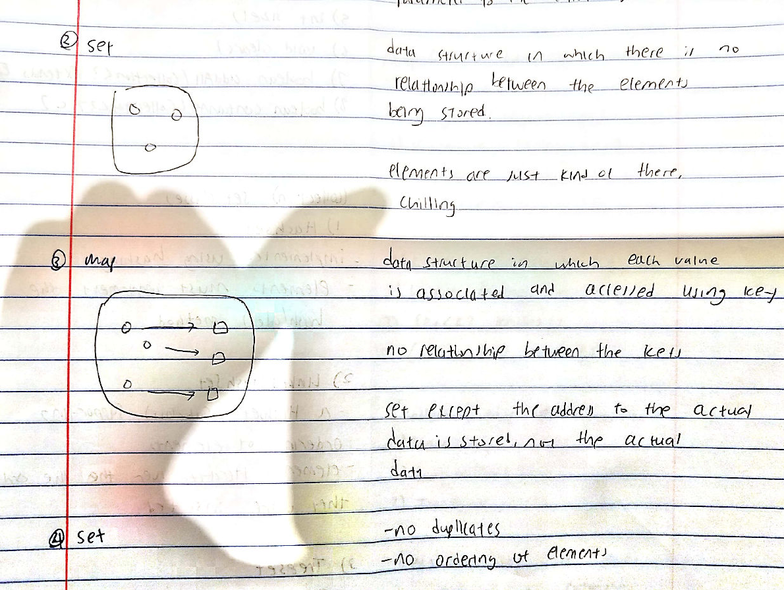 ② set
data structure in which there is no
relationship between the elements
being stored.
elements are just kind of there,
chilling
③ map
data structure in which each value
is associated and accessed using key
no relationship between the keys
set except the address to the actual
data is stored, not the actual
data
④ set
-no duplicates
-no ordering of elements